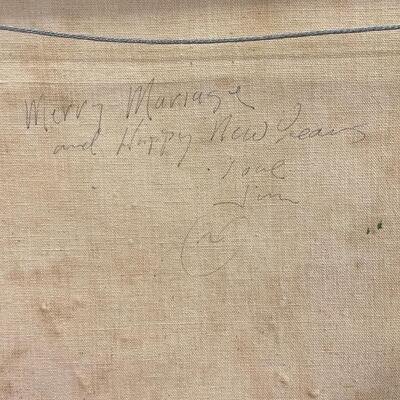 Merry Mariage
and Happy New Years
Love
Jim